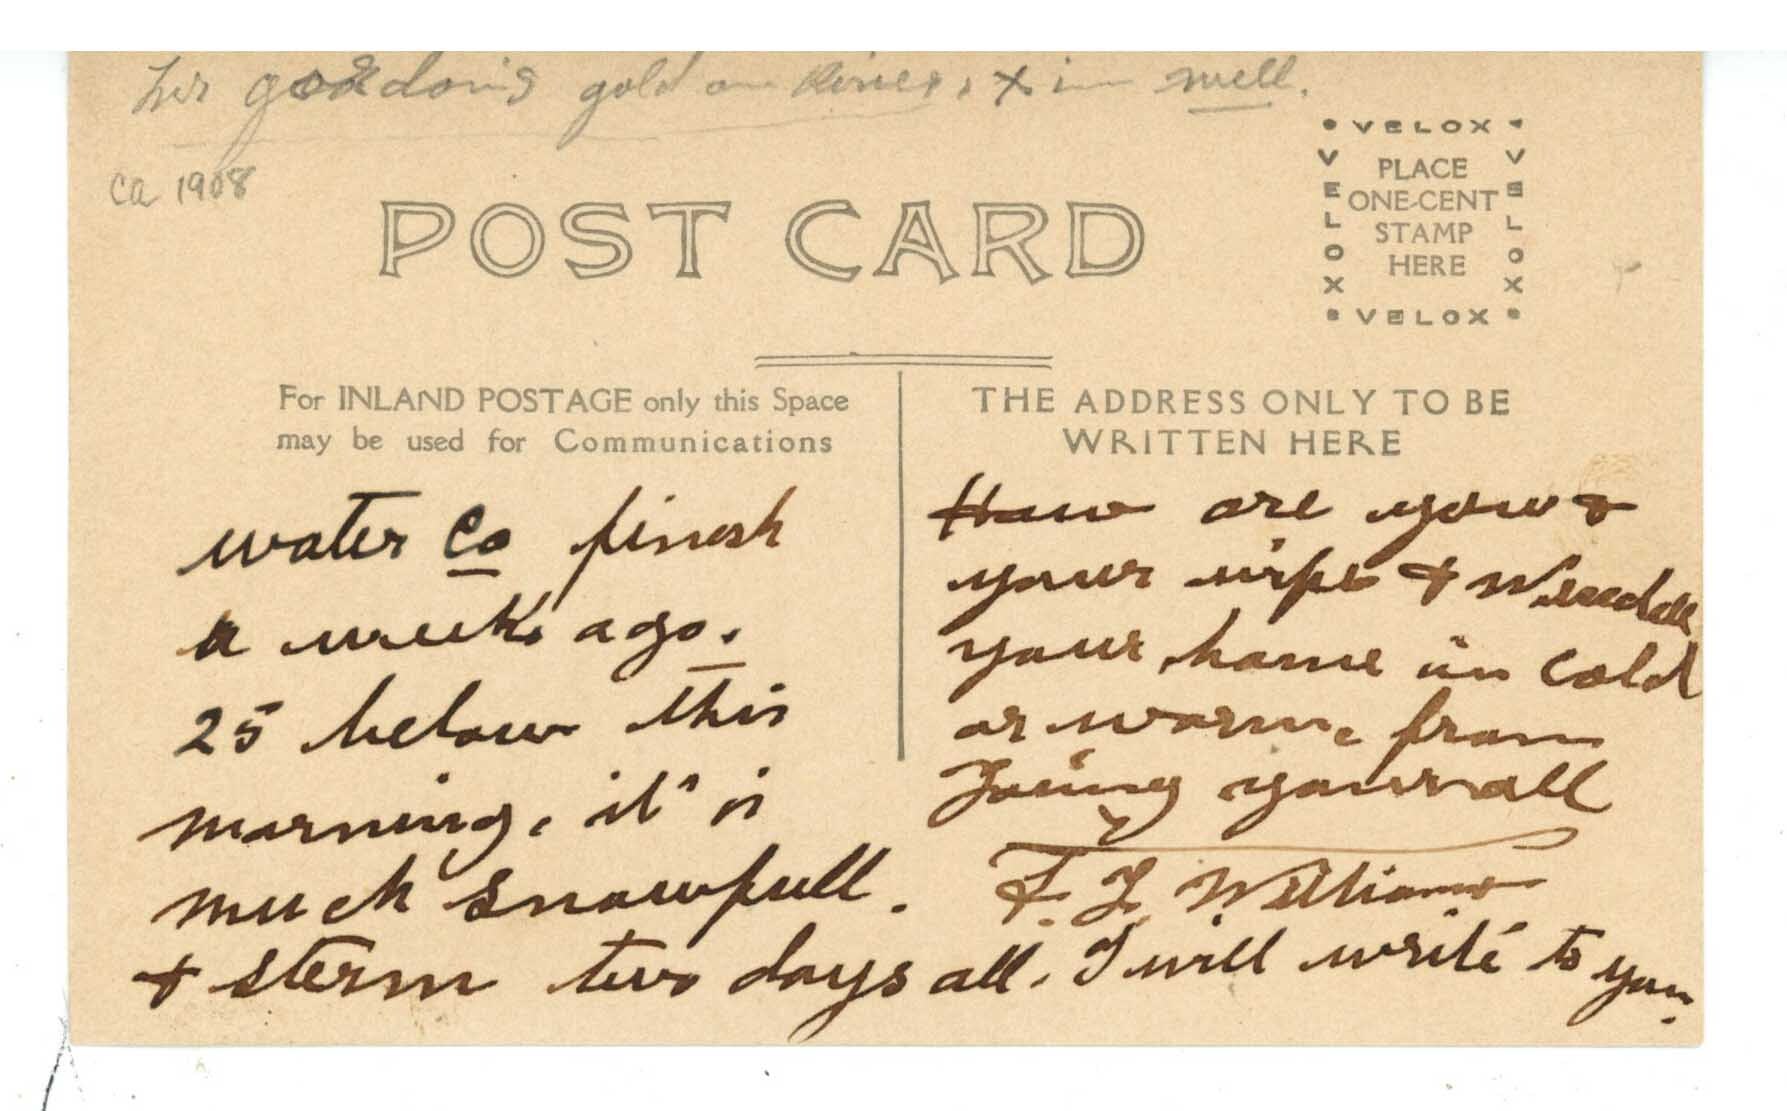 her good doing gold on River, & in well.
ca 1908
POST CARD
VELOX
VELOX
PLACE
ONE-CENT
STAMP
HERE
VELOX
VELOX
For INLAND POSTAGE only this Space
may be used for Communications
THE ADDRESS ONLY TO BE
WRITTEN HERE
water Co finesh
a week ago.
25 below this
morning, it is
much snowfull.
& sterm two days all. I will write to you.
How are you &
your wife &
your home in cold
or warm, from
yours all
F. L. Williams